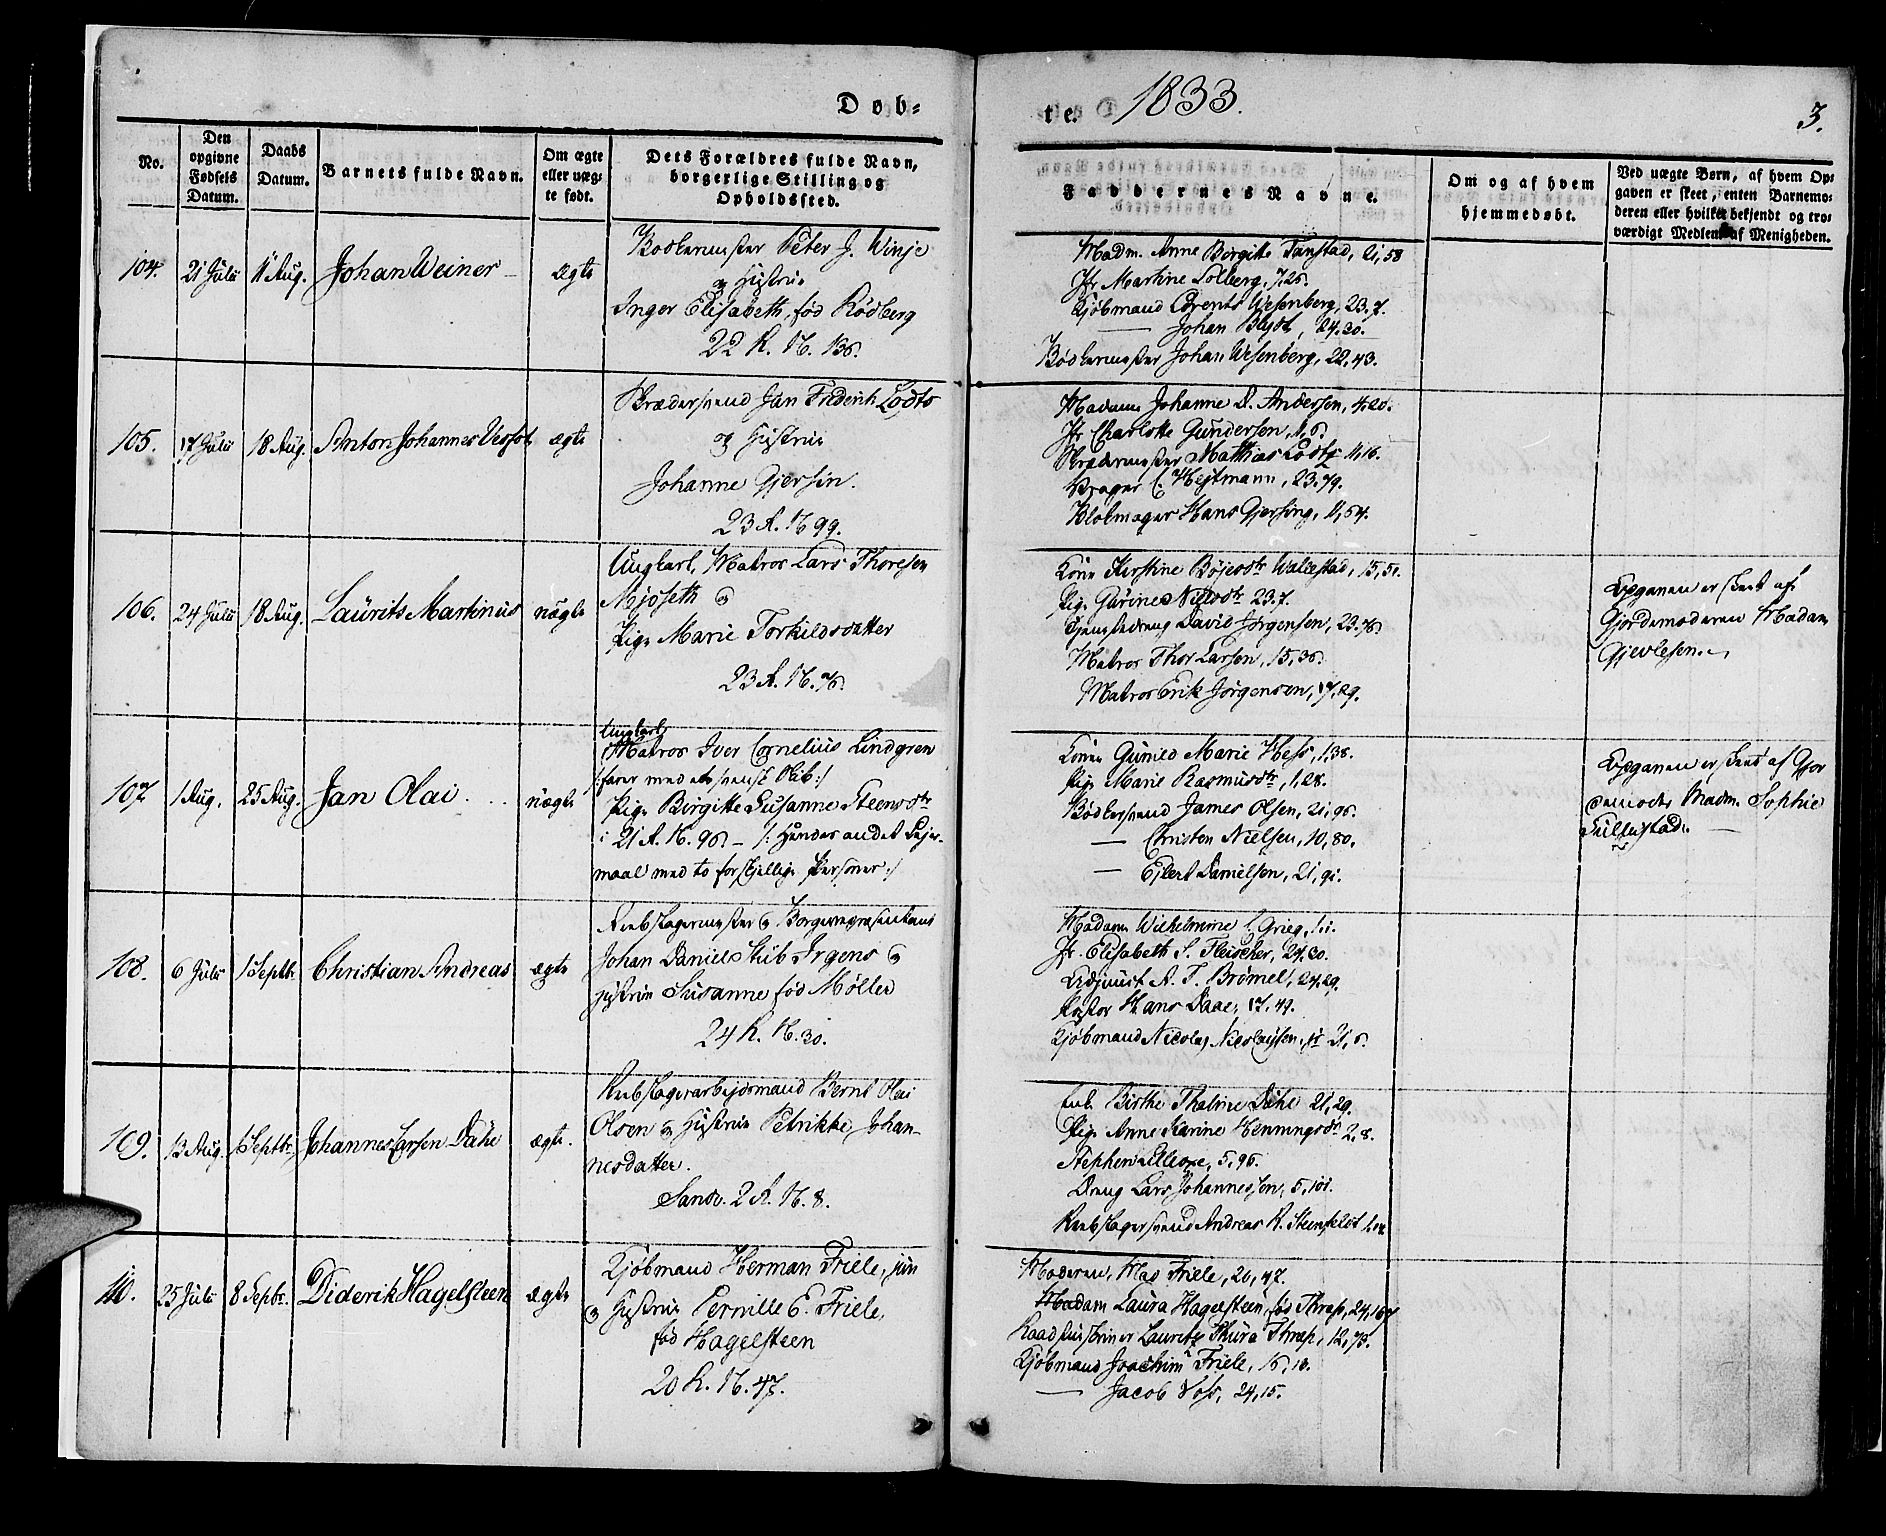 Døb=
te. 1833.
3.
No.
Den
opgivne
Fødsels
Datum.
Daabs
Datum.
Barnets fulde Navn.
Om ægte
eller uæg-
te født.
Dets Forældres fulde Navn,
borgerlige Stilling og
Opholdssted.
Faddernes Navne.
Om og af hvem
hjemmedøbt.
Ved uægte Børn, af hvem Op-
gaven er skeet, enten Barnemo-
deren eller hvilket bekjendt og tro-
værdigt Medlem af Menigheden.
104. 21 Julii 11 Aug. Johan Weiner ægte
Bødkermester Peter J. Winje
og Hustrue
Inger Elisabeth, fød Rødberg
22 R. N. 136.
Madm. Anne Birgitte Tanstad, 21,58
Jfr Martine Solberg, 7,25.
Kjøbmand Arents Wesenberg, 23.7.
— Johan Blydt, 24.30.
Bødkermester Johan Wesenberg, 22,43.
105. 17 Julii 18 Aug. Anton Johannes ægte
Skrædersvend Jan Frederik Lodts
og Hustrue
Johanne Gjersin.
23 R. N 99.
Madame Johanne D. Andersen, 4,20.
Jfr Charlotte Gundersen, 1,6.
Skrædermester Matthias Lodtz 11,16.
C. Hejtmann, 23.79.
Blokmager Hans Gjersing, 11,54.
106. 24 Julii 18 Aug. Laurits Martinus uægte
Ungkarl, Matros Lars Thoresen
Mjøseth og
Pige Marie Torkildsdatter
23 R. N. 76.
Kone Kirstine Bøjesdtr Wallestad, 15,51.
Pige Gurine Nilsdtr 23.7.
Tjenestedreng David Jørgensen, 23.76.
Matros Thor Larsen, 15,36.
Matros Erik Jørgensen, 17,29.
Opgaven er skeet af
Gjordemoderen Madam
Gjevlesen.
107 1 Aug. 25 Aug. Jan Olai uægte
Ungkarl
Matros Iver Cornelius Lindgren
/:farer med et svensk Skib:/
Pige Birgitte Susanne Steensdtr
21 R. N. 96 — /: Hendes andet Lejer-
maal med to forskjellige Personer:/
Kone Gunild Marie Hess, 1,38.
Pige Marie Rasmusdtr, 1,28.
Bødkersvend James Olsen, 21,96.
— Christen Nielsen, 10,80.
— Ejlert Danielsen, 21,91.
Opgaven er skeet af Gjor
demoder Madm. Sophie
108. 6 Julii 1 Septbr. Christian Andreas ægte
Rebslagermester og Borgerrepræsentant
Johan Daniel Stub Irgens og
Hustrue Susanne fød Møller
24 R. N. 30.
Madam Wilhelmine C. Grieg, 1,1.
Jfr. Elisabeth S. Fleischer, 24,30.
Adjunct A. T. Brømel, 24,29.
Pastor Hans Daae, 17,49.
Kjøbmand Nicolay Nicolaysen, jr 21,6.
109. 13 Aug. 1 Septbr. Johannes Larsen Dahe ægte.
Rebslagerarbejdsmand Bernt Olai
Olsen og Hustrue Petrikke Johan-
nesdatter.
Sandv. 2 R. N. 8.
Birthe Thalvine Dahl 21,29.
Pige Anne Karine Henningsdtr 2,8.
5,96.
Dreng Lars Johannessen, 5,101.
Rebslagersvend Andreas R. Steenfeldt
110. 25 Julii 8 Septbr. Diderik Hagelsteen ægte
Kjøbmand Herman Friele, jun
og Hustrue Pernille E. Friele,
fød Hagelsteen
20 R. N. 47.
Moderen, Mad Friele, 20,47.
Madam Laura Hagelsteen, fød Thrap, 24,
Raadstueskriver Lauritz Thura Thrap, 12,75.
Kjøbmand Joachim Friele, 16,10.
— Jacob Voss, 24,15.